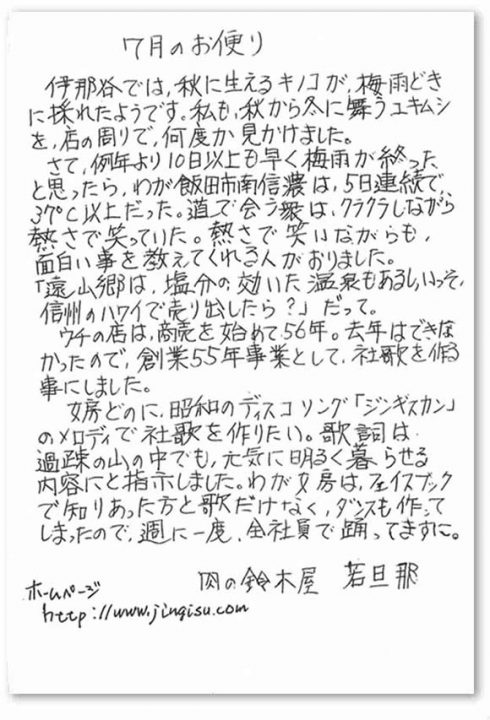 7月のお便り
伊那谷では，秋に生えるキノコが，梅雨どき
に採れたようです。私も，秋から冬に舞うユキムシ
を，店の周りで，何度か見かけました。
さて，例年より10日以上も早く梅雨が終った
と思ったら，わが飯田市南信濃は，5日連続で，
37℃以上だった。道で会う衆は，クラクラしながら
熱さで笑っていた。熱さで笑いながらも，
面白い事を教えてくれる人がおりました。
「遠山郷は，塩分の効いた温泉もあるし，いっそ，
信州のハワイで売り出したら？」だって。
ウチの店は，商売を始めて56年。去年はできな
かったので，創業55年事業として，社歌を作る
事にしました。
女房どのに，昭和のディスコソング「ジンギスカン」
のメロディで社歌を作りたい。歌詞は
過疎の山の中でも，元気に明るく暮らせる
内容にと指示しました。わが女房は，フェイスブック
で知りあった方と歌だけなく，ダンスも作って
しまったので，週に一度，全社員で踊ってますに。
肉の鈴木屋　若旦那
ホームページ
http://www.jingisu.com